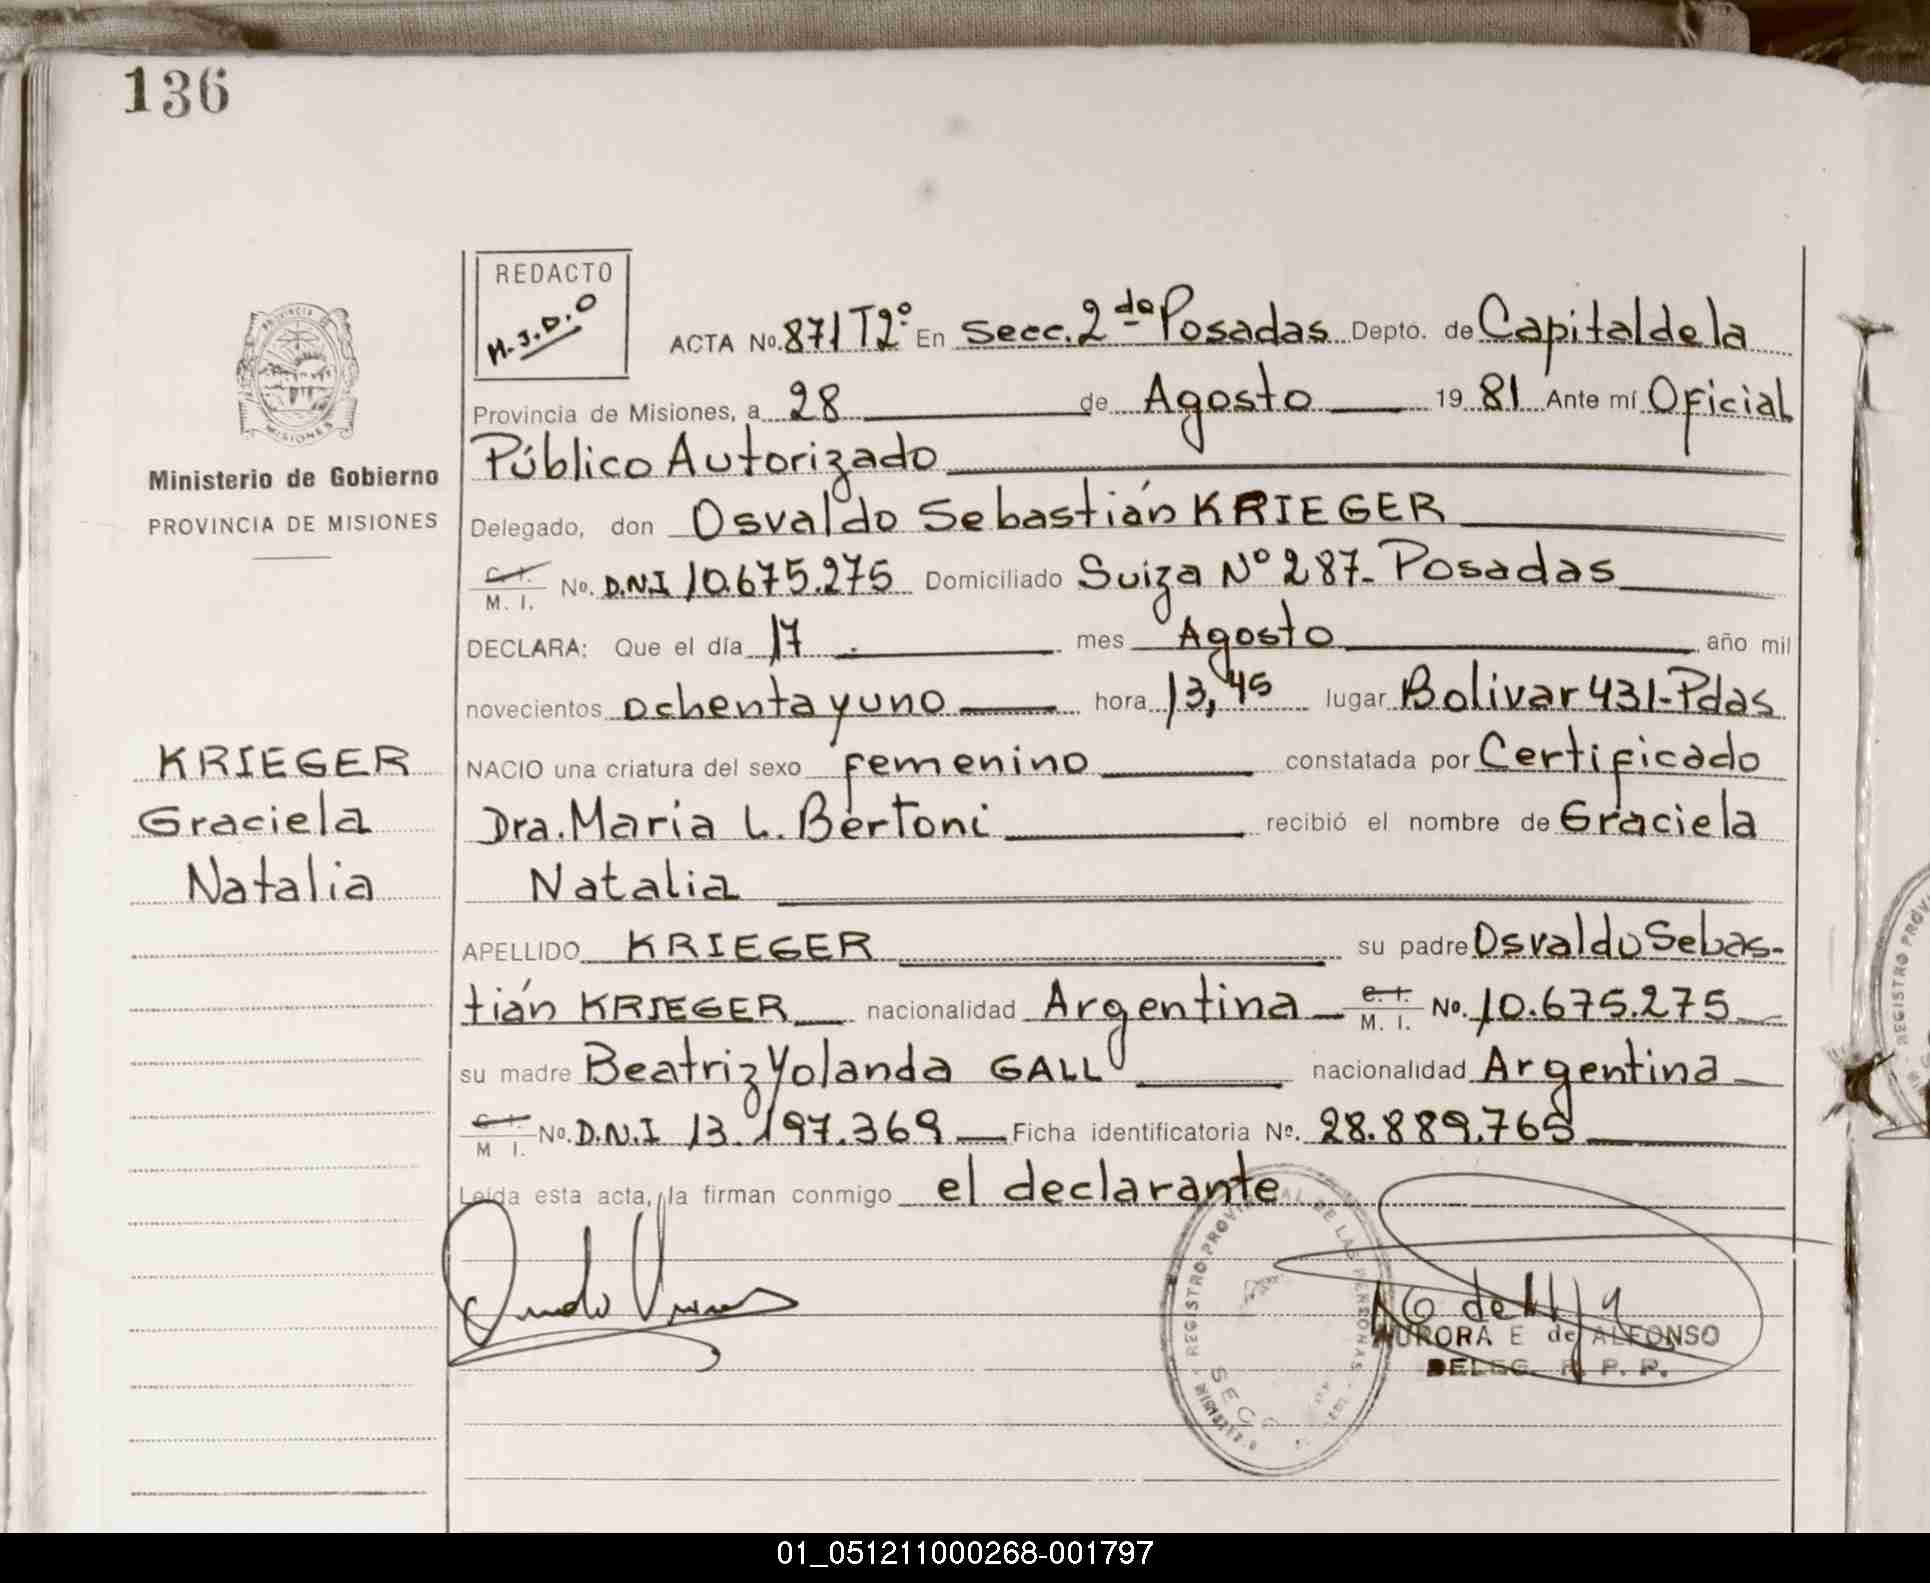 136
REDACTO
M.J.D.O
ACTA No. 871 T2º En Secc. 2da Posadas Depto. de Capital de la
Provincia de Misiones, a 28 de Agosto 1981 Ante mí Oficial
Público Autorizado
Ministerio de Gobierno
PROVINCIA DE MISIONES
Delegado, don Osvaldo Sebastián KRIEGER
C. I. M. I. No. D.N.I 10.675.275 Domiciliado Suiza Nº 287- Posadas
DECLARA: Que el día 17 mes Agosto año mil
novecientos ochenta y uno hora 13,45 lugar Bolivar 431-Pdas
KRIEGER
Graciela
Natalia
NACIO una criatura del sexo femenino constatada por Certificado
Dra. Maria L. Bertoni recibió el nombre de Graciela
Natalia
APELLIDO KRIEGER su padre Osvaldo Sebas-
tián KRIEGER nacionalidad Argentina C. I. M. I. No. 10.675.275
su madre Beatriz Yolanda GALL nacionalidad Argentina
C. I. M I. No. D.N.I 13.197.369 Ficha identificatoria Nº. 28.889.765
Leída esta acta, la firman conmigo el declarante
REGISTRO PROVINCIAL DE LAS PERSONAS
SECC
AURORA E de ALFONSO
DELEG. R. P. P.
01_051211000268-001797